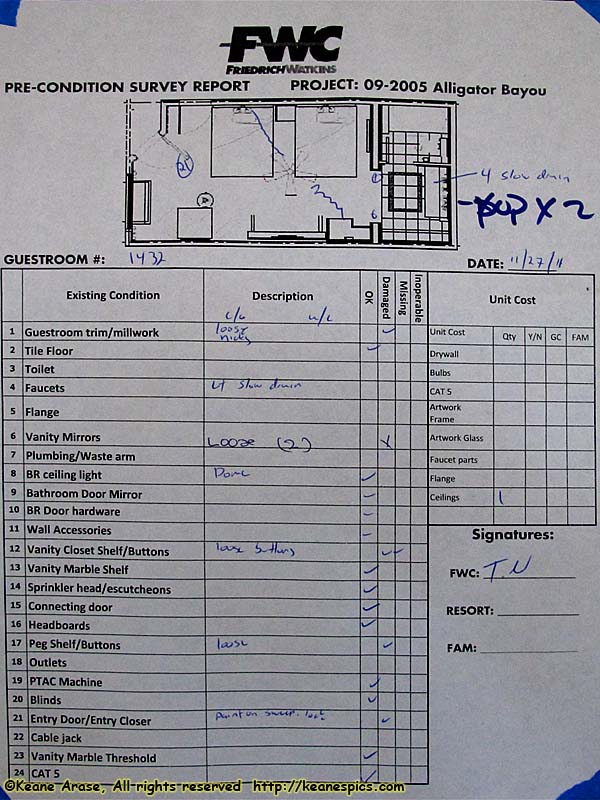 FWC
FRIEDRICHWATKINS
PRE-CONDITION SURVEY REPORT PROJECT: 09-2005 Alligator Bayou
4 slow drain
x 2
GUESTROOM #: 1432 DATE: 11/27/11
Existing Condition Description OK Damaged Missing Inoperable Unit Cost
Unit Cost Qty Y/N GC FAM
1 Guestroom trim/millwork loose nicks
Drywall
2 Tile Floor
Bulbs
3 Toilet
CAT 5
4 Faucets Lt slow drain
Artwork Frame
5 Flange
Artwork Glass
6 Vanity Mirrors Loose (2) X
Faucet parts
7 Plumbing/Waste arm
Flange
8 BR ceiling light Dome
Ceilings 1
9 Bathroom Door Mirror
10 BR Door hardware
11 Wall Accessories
Signatures:
12 Vanity Closet Shelf/Buttons loose buttons
FWC: T.N
13 Vanity Marble Shelf
14 Sprinkler head/escutcheons
RESORT:
15 Connecting door
16 Headboards
FAM:
17 Peg Shelf/Buttons loose
18 Outlets
19 PTAC Machine
20 Blinds
21 Entry Door/Entry Closer paint on sweep. lock
22 Cable jack
23 Vanity Marble Threshold
24 CAT 5
©Keane Arase, All rights reserved http://keanespics.com